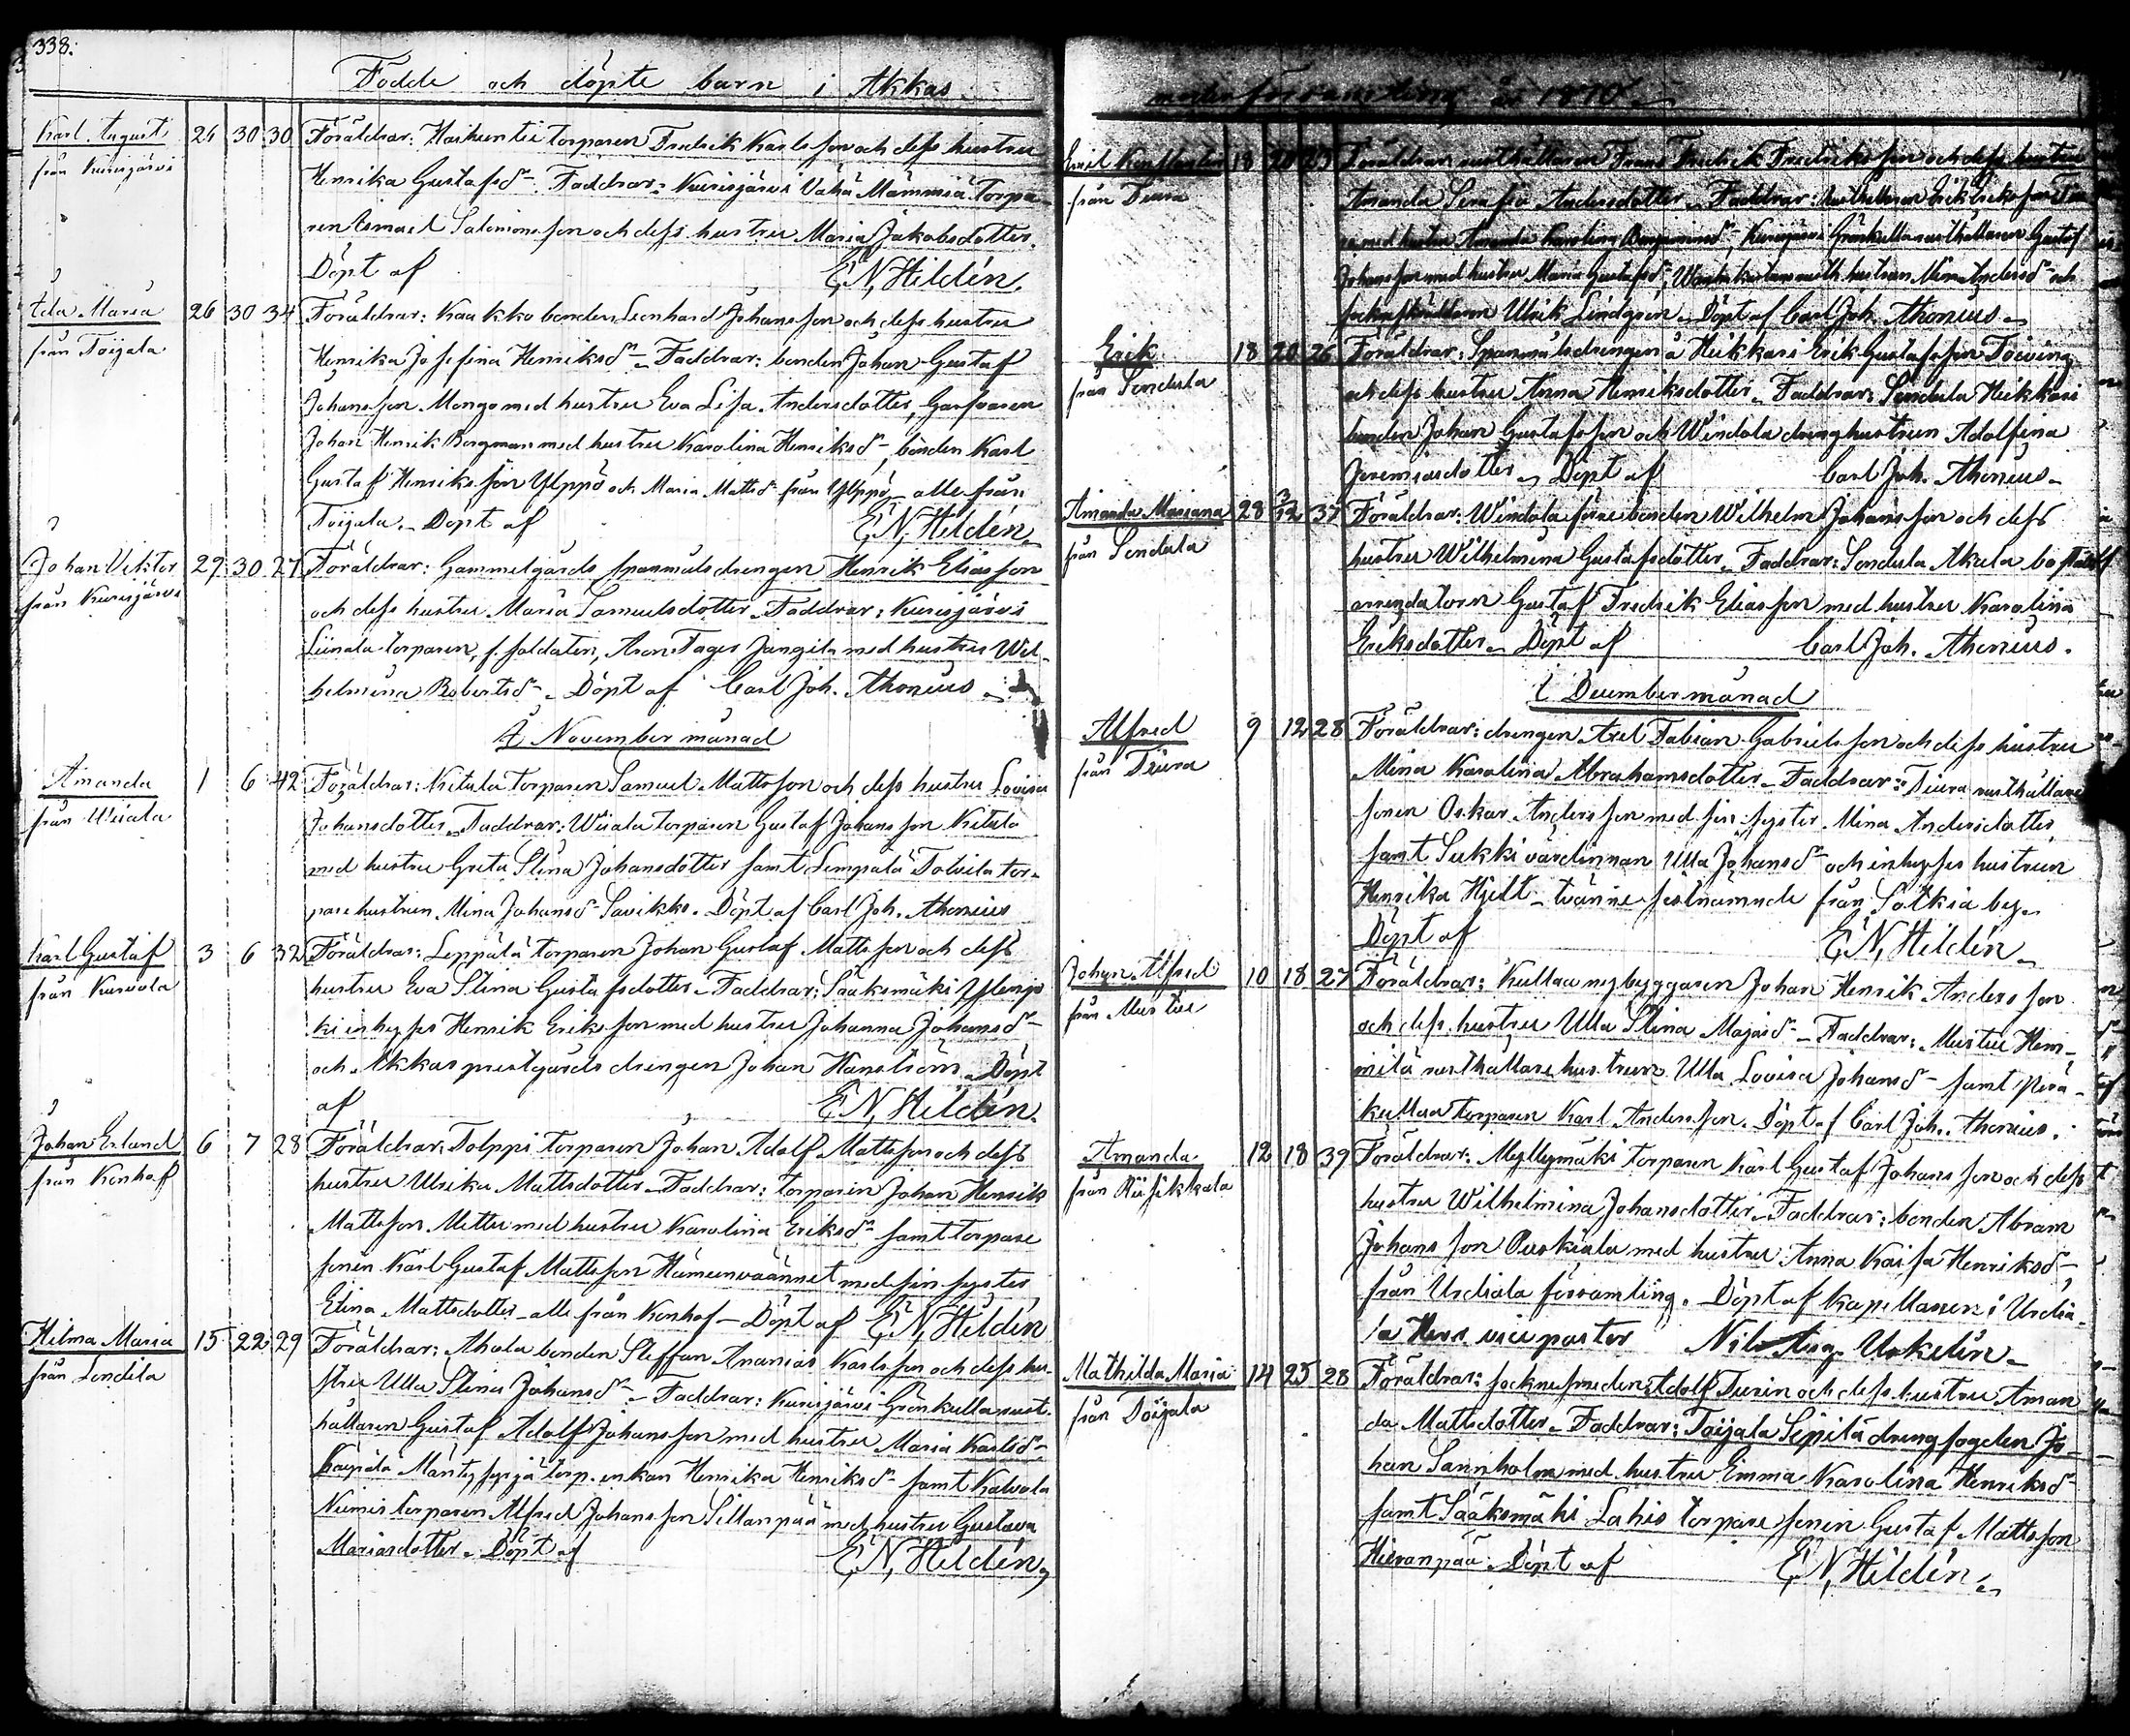 338.
Födde och döpte barn i Akkas
Karl August 24 30 30 Föräldrar: torparen Fredrik Karlsson och dess hustru
från Kurisjärvi
Henrika Gustafsdr. Faddrar: Kurisjärvi Vähä Mämmiä Torpa-
ren Ismael Salomonsson och dess hustru Maria Jakobsdotter.
Döpt af E, N, Hildén.
Ida Maria 26 30 34 Föräldrar: Kaakko bonden Leonhard Johansson och dess hustru
från Toijala
Henrika Josefina Henriksdr. Faddrar: bonden Johan Gustaf
Johansson Mongo med hustru Eva Lisa Andersdotter, Garfvaren
Johan Henrik Bergman med hustru Karolina Henriksdr, bonden Karl
Gustaf Henriksson Ylppö och Maria Mattsdr från Ylppö, alla från
Toijala. Döpt af E, N, Hildén
Johan Viktor 29 30 27 Föräldrar: Gammelgårds spanmålsdrengen Henrik Eliasson
från Kurisjärvi
och dess hustru Maria Samuelsdotter. Faddrar: Kurisjärvi
Liinala torparen, f. soldaten, med hustru Wil-
helmina Robertsdr. Döpt af Carl Joh. Athonius
I November månad
Amanda 1 6 42 Föräldrar: Kitula torparen Samuel Mattsson och dess hustru Lovisa
från Wiiala
Johansdotter. Faddrar: Wiiala torparen Gustaf Johansson Kitula
med hustru Greta Stina Johansdotter samt Lempälä tor-
pare hustrun Mina Johansdr Savikko. Döpt af Carl Joh. Athonius
Karl Gustaf 3 6 32 Föräldrar: Leppälä torparen Johan Gustaf Mattsson och dess
från Kurvola
hustru Eva Stina Gustafsdotter. Faddrar: Sääksmäki
inhyses Henrik Eriksson med hustru Johanna Johansdr
och Akkas prestgårds drengen Johan Hanström. Döpt
af E, N, Hildén.
Johan Erland 6 7 28 Föräldrar: Tolppi torparen Johan Adolf Mattsson och dess
från Konhof
hustru Ulrika Mattsdotter. Faddrar: torparen Johan Henrik
Mattsson med hustru Karolina Eriksdr samt torpare
sonen Karl Gustaf Mattsson med sin syster
Elina Mattsdotter alla från Konhof. Döpt af E, N, Hildén
Hilma Maria 15 22 29 Föräldrar: Ahola bonden Steffan Ananias Karlsson och dess hu-
från Sendula
stru Ulla Stina Johansdr. Faddrar: Kurisjärvi Grönkulla rust-
hållaren Gustaf Adolf Johansson med hustru Maria Karlsdr
torp. enkan Henrika Henriksdr samt Kalvola
Niemis torparen Alfred Johansson Sillanpää med hustru Gustava
Mariasdotter. Döpt af E, N, Hildén,
moderförsamling år 1870
18 20 25 Föräldrar: rusthållaren Frans Fredrik Fredriksson och dess hustru
från Tiura
Amanda Serafia Andersdotter. Faddrar: rusthållaren Erik Eriksson
med hustru Amanda Karolina Kurisjärvi Grönkulla rusthållaren Gustaf
Johansson med hustru Maria Gustafsdr, hustrun Mina Andersdr och
sockenskräddaren Ulrik Lindgren. Döpt af Carl Joh. Athonius.
Erik 18 20 26 Föräldrar: Spanmålsdrengen å Heikkari Erik Gustafsson Toiving
från Sendula
och dess hustru Anna Henriksdotter. Faddrar: Sendula Heikkari
bonden Johan Gustafsson och Windala drenghustrun Adolfina
Jeremiasdotter. Döpt af Carl Joh. Athonius.
Amanda Mariana 28 3/12 37 Föräldrar: Windala förre bonden Wilhelm Johansson och dess
från Sendula
hustru Wilhelmina Gustafsdotter. Faddrar: Sendula Akula
arrendatorn Gustaf Fredrik Eliasson med hustru Karolina
Eriksdotter. Döpt af Carl Joh. Athonius.
I December månad
Alfred 9 12 28 Föräldrar: drengen Axel Fabian Gabrielsson och dess hustru
från Tiura
Mina Karolina Abrahamsdotter. Faddrar: Tiura rusthållare
sonen Oskar Andersson med sin syster Mina Andersdotter
samt Sukki värdinnan Ulla Johansdr och inhyses hustrun
Henrika Hjelt tvänne sistnämnde från Sotkia by.
Döpt af E, N, Hildén
Johan Alfred 10 18 27 Föräldrar: Kullaa nybyggaren Johan Henrik Andersson
från Mustue
och dess hustru Ulla Stina Majasdr. Faddrar: Mustue Hem-
milä rusthållare hustrun Ulla Lovisa Johansdr samt Perä-
kullaa torparen Karl Andersson. Döpt af Carl Joh. Athonius.
Amanda 12 18 39 Föräldrar: Myllymäki torparen Karl Gustaf Johansson och dess
från Riisikkala
hustru Wilhelmina Johansdotter. Faddrar: bonden Abram
Johansson Puskiala med hustru Anna Kaisa Henriksdr,
från Urdiala församling. Döpt af kapellanen i Urdia-
la Herr vice pastor
Mathilda Maria 14 25 28 Föräldrar: sockne smeden Adolf Turin och dess hustru Aman
från Toijala
da Mattsdotter. Faddrar: Toijala Sipilä drengsogden Jo-
han Sannholm med hustru Emma Karolina Henriksdr
samt Sääksmäki Lahis torpare sonen Gustaf Mattsson
Hieranpää. Döpt af E, N, Hildén,